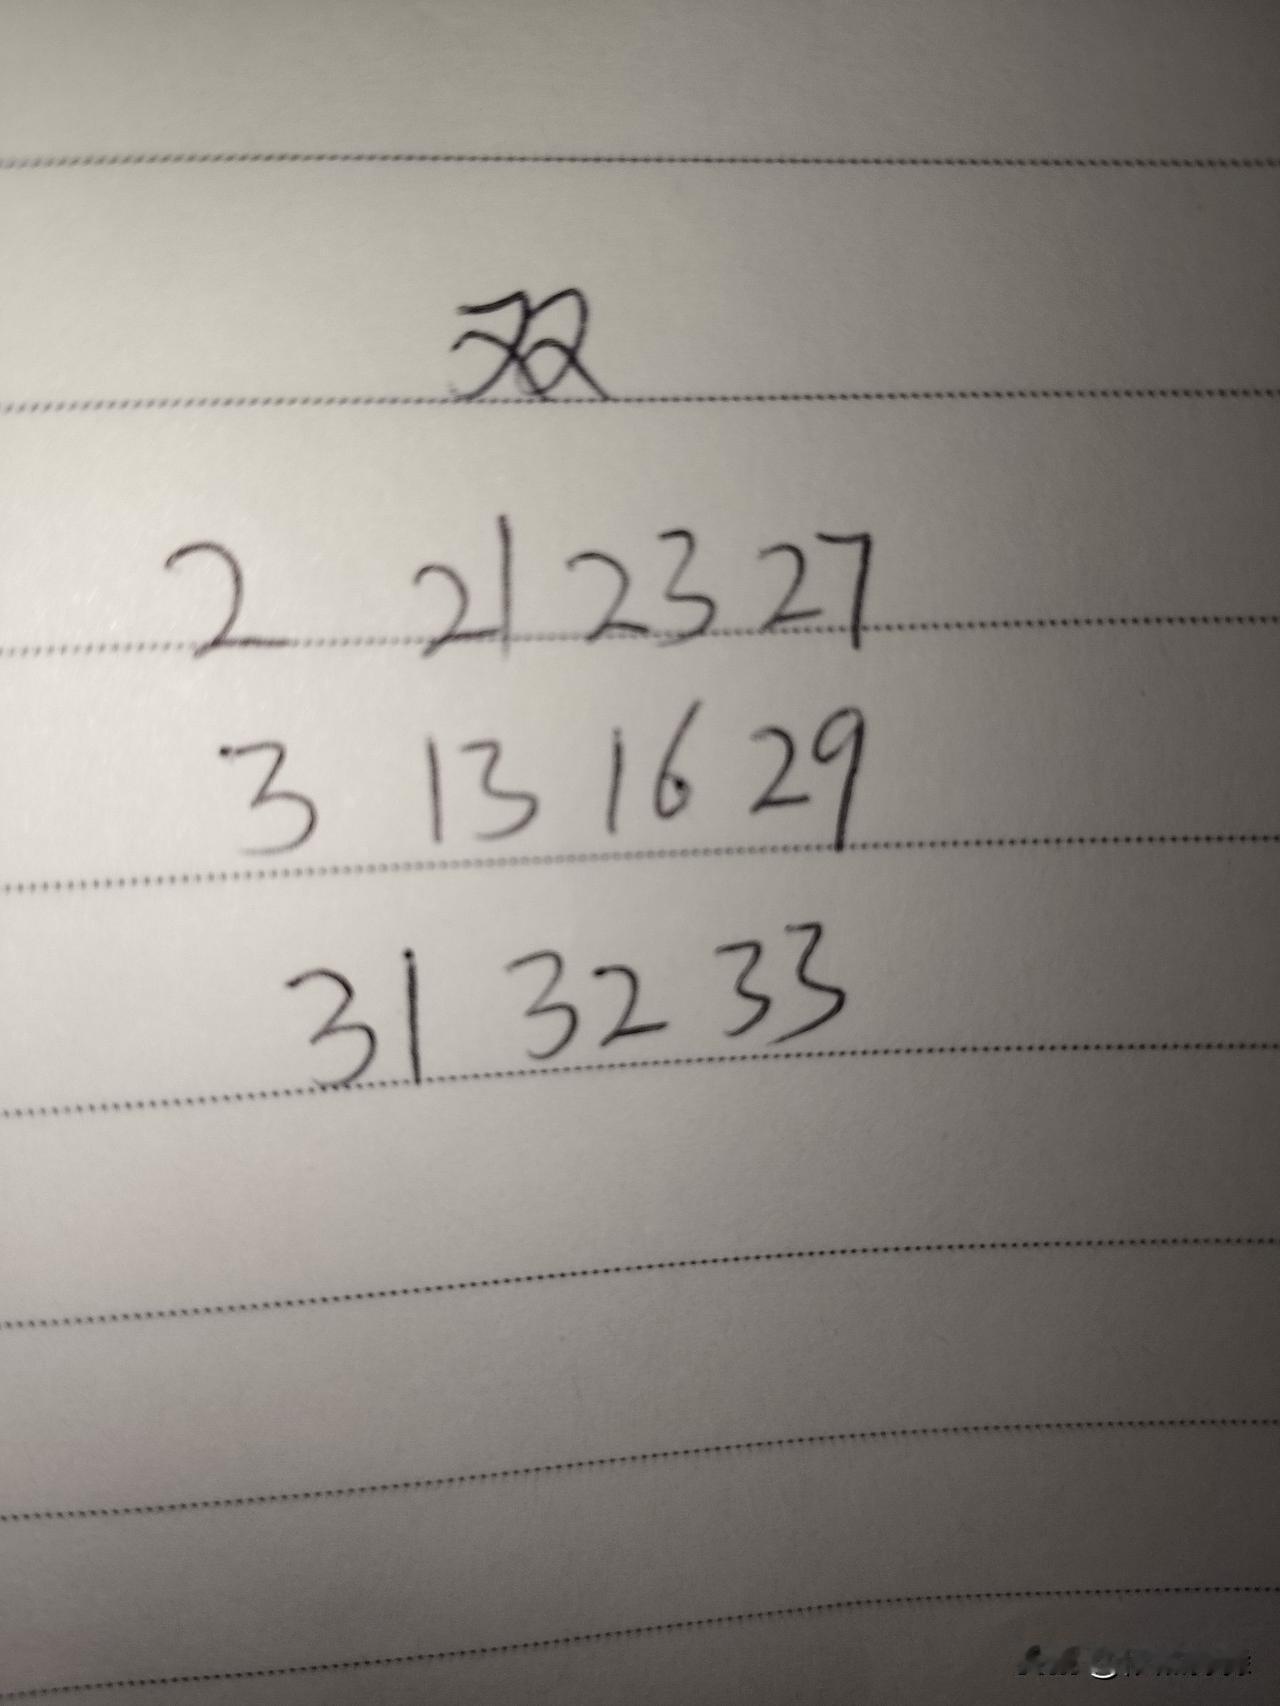 双
2 21 23 27
3 13 16 29
31 32 33